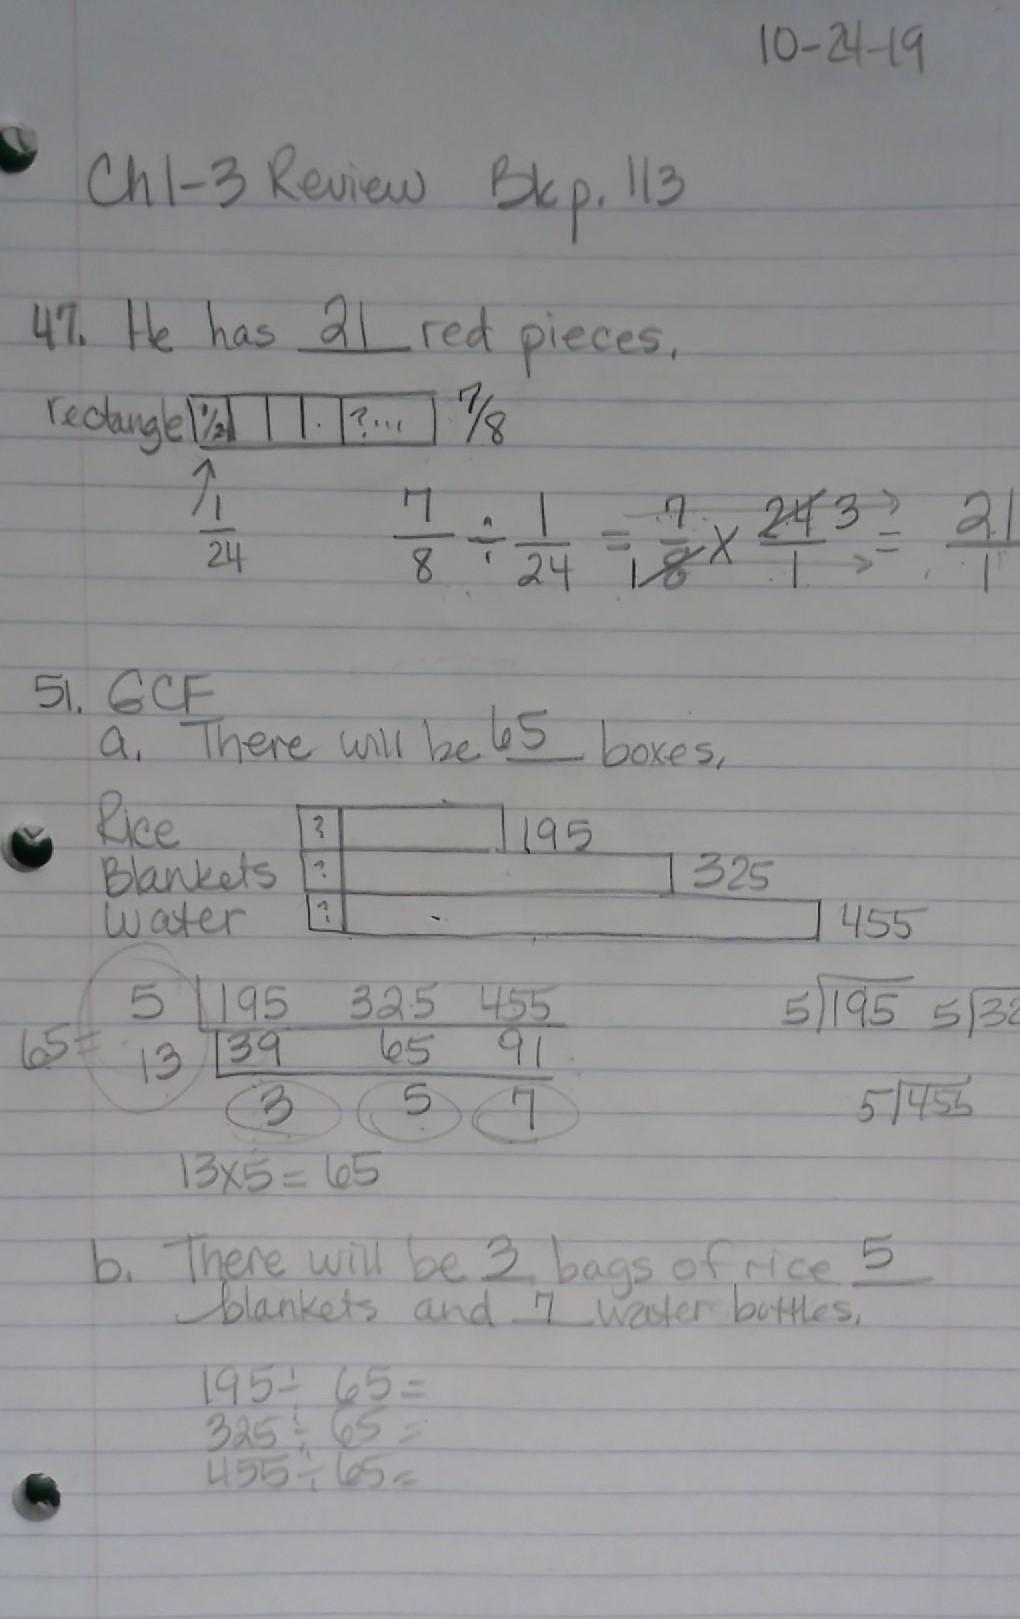 10-24-19
Ch 1-3 Review Bk p. 113
47. He has 21 red pieces.
rectangle ?... 7/8
1/24
7/8 ÷ 1/24 = 7/8 1 × 24/1 3 = 21/1
51. GCF
a. There will be 65 boxes.
Rice ? 195
Blankets ? 325
Water ? 455
5 195 325 455 5)195
65= 13 39 65 91
3 5 7 5)455
13×5=65
b. There will be 3 bags of rice 5
blankets and 7 water bottles.
195÷ 65=
325÷ 65=
455÷ 65=